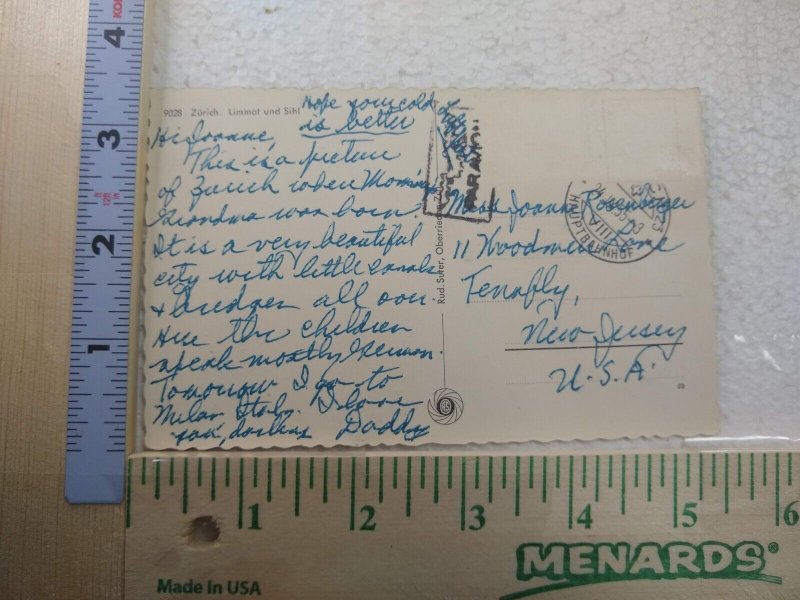 9028 Zürich. Limmat und Sihl
Hope your cold
is better
Hi Joanne,
This is a picture
of Zurich when Mommies
Grandma was born.
It is a very beautiful
city with little canals
& bridges all over.
Here the children
speak mostly German.
Tomorrow I go to
Milan Italy. I love
you, darling Daddy
Rud. Suter, Oberrieden-Zürich
PAR AVION
HAUPTBAHNHOF
Miss Joanne Rosenberger
11 Woodmere Lane
Tenafly,
New Jersey
U.S.A.
4
3
2
1
1 2 3 4 5 6
MENARDS
Made In USA